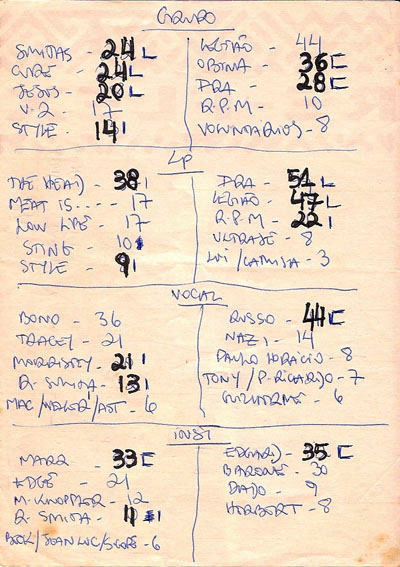 GRUPO
SMITHS - 24 L
CURE - 24 L
JESUS - 20 L
U-2 - 17
STYLE - 14 I
LEGIÃO - 44
OBINA - 36 C
DRA - 28 C
R.P.M - 10
VOLUNTÁRIOS - 8
LP
THE HEAD - 38 I
MEAT IS ---- 17
LOW LIFE - 17
STING - 10
STYLE - 9 I
DRA - 51 L
LEGIÃO - 47 L
R.P.M - 22 I
ULTRAJE - 8
LUI/CAMISA - 3
VOCAL
BONO - 36
TRACEY - 21
MORRISSEY - 21 I
R. SMITH - 13 I
MAC/WELLER/AST - 6
RUSSO - 44 C
NAZI - 14
PAULO HORÁCIO - 8
TONY/P.RICARDO - 7
GUILHERME - 6
INST
MARR - 33 C
EDGE - 21
M. KNOPFLER - 12
R. SMITH - 11 I
BUCK/JEAN LUC/ - 6
EDGARD - 35 C
BARONE - 30
DADO - 9
HERBERT - 8